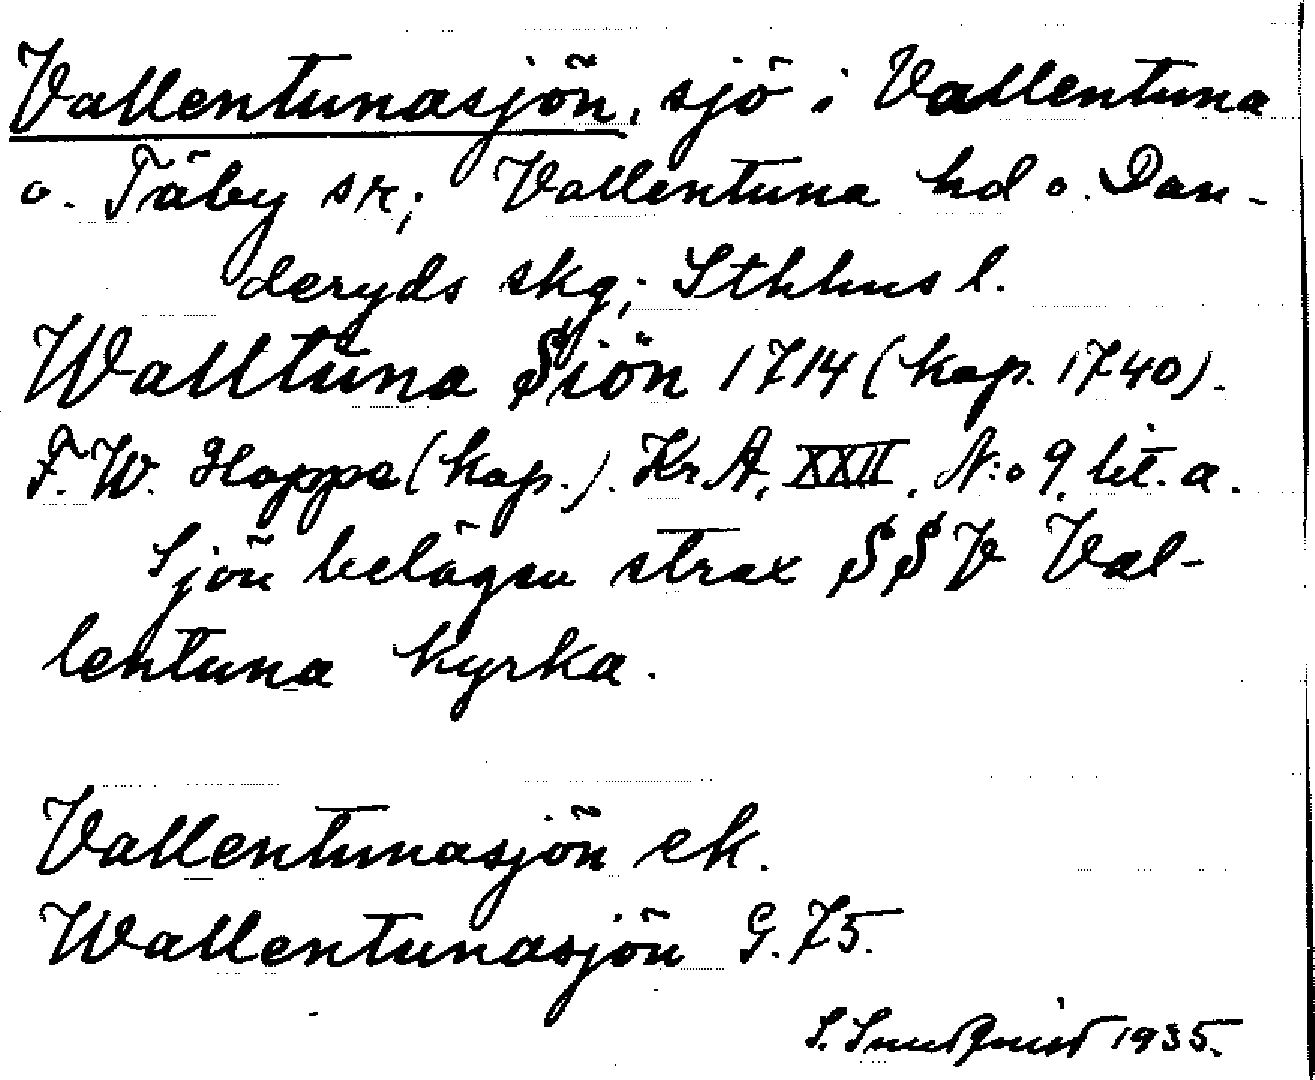 Vallentunasjön, sjö i Vallentuna
o. Täby sk; Vallentuna hd o. Dan-
deryds skg; Sthlms l.
Walltuna Siön 1714 (kop. 1740).
F. W. Hoppe (kop.). Kr. A. XXII, N:o 9, lit. a.
Sjön belägen strax SSV Val-
lentuna kyrka.
Vallentunasjön ek.
Wallentunasjön G. 75.
S. 1935.